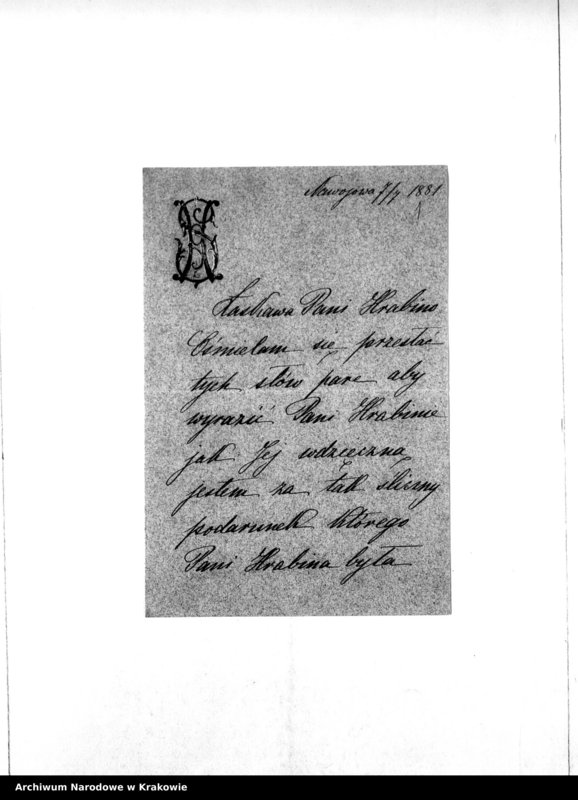 Nawojowa 7/7 1881
Łaskawa Pani Hrabino
Ośmielam się przesłać
tych słów parę aby
wyrazić Pani Hrabinie
jak Jej wdzięczną
jestem za tak śliczny
podarunek którego
Pani Hrabina była
Archiwum Narodowe w Krakowie